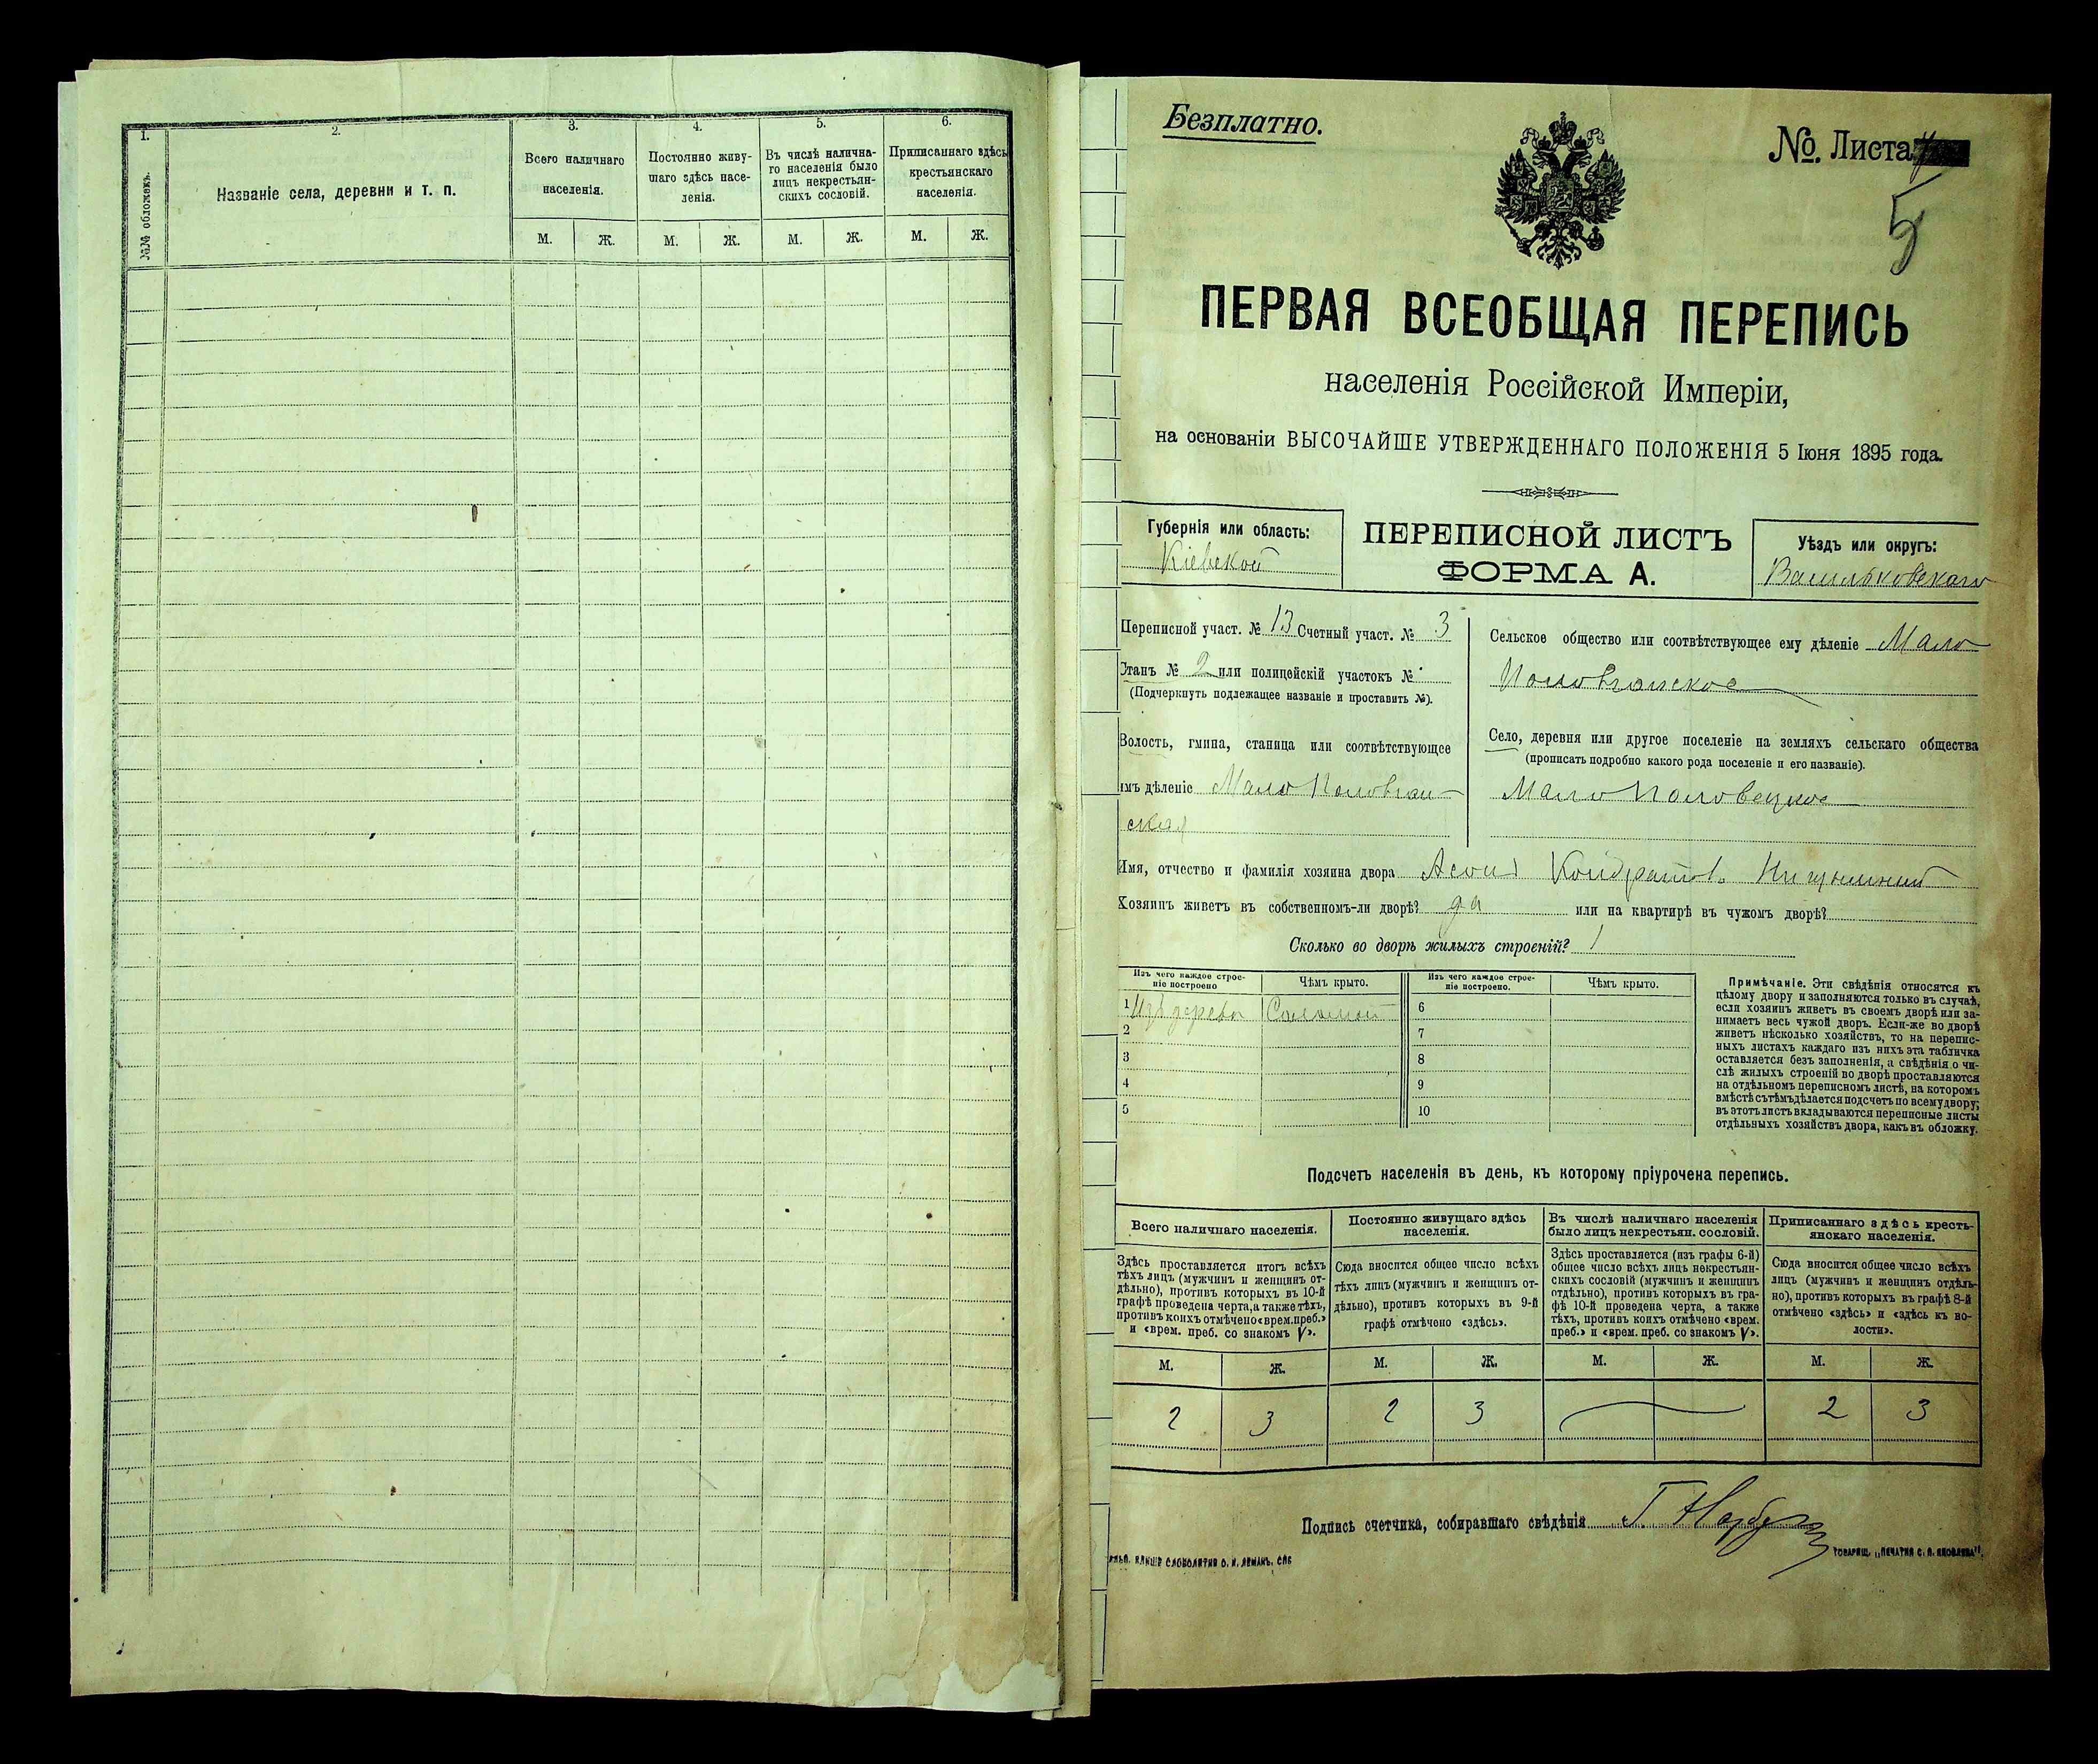 1.
2.
3.
4.
5.
6.
№№ обложекъ.
Названіе села, деревни и т. п.
Всего наличнаго
населенія.
Постоянно живу-
щаго здѣсь насе-
ленія.
Въ числѣ налична-
го населенія было
лицъ некрестьян-
скихъ сословій.
Приписаннаго здѣсь
крестьянскаго
населенія.
М. Ж. М. Ж. М. Ж. М. Ж.
Безплатно.
№. Листа
5
ПЕРВАЯ ВСЕОБЩАЯ ПЕРЕПИСЬ
населенія Россійской Имперіи,
на основаніи ВЫСОЧАЙШЕ УТВЕРЖДЕННАГО ПОЛОЖЕНІЯ 5 Іюня 1895 года.
Губернія или область:
Кіевской
ПЕРЕПИСНОЙ ЛИСТЪ
ФОРМА А.
Уѣздъ или округъ:
Васильковскаго
Переписной участ. № 13 Счетный участ. № 3
Станъ № 2 или полицейскій участокъ №
(Подчеркнуть подлежащее названіе и проставить №).
Волость, гмина, станица или соотвѣтствующее
имъ дѣленіе Мало
ская
Сельское общество или соотвѣтствующее ему дѣленіе Мало
Село, деревня или другое поселеніе на земляхъ сельскаго общества
(прописать подробно какого рода поселеніе и его названіе).
Мало Половецкое
Имя, отчество и фамилія хозяина двора Кондратовъ
Хозяинъ живетъ въ собственномъ-ли дворѣ? да или на квартирѣ въ чужомъ дворѣ?
Сколько во дворѣ жилыхъ строеній? 1
Изъ чего каждое строе-
ніе построено
Чѣмъ крыто.
Изъ чего каждое строе-
ніе построено.
Чѣмъ крыто.
1 Изъ дерева Соломой 6
2 7
3 8
4 9
5 10
Примѣчаніе. Эти свѣдѣнія относятся къ
цѣлому двору и заполняются только въ случаѣ,
если хозяинъ живетъ въ своемъ дворѣ или за-
нимаетъ весь чужой дворъ. Если-же во дворѣ
живетъ нѣсколько хозяйствъ, то на перепис-
ныхъ листахъ каждаго изъ нихъ эта табличка
оставляется безъ заполненія, а свѣдѣнія о чи-
слѣ жилыхъ строеній во дворѣ проставляются
на отдѣльномъ переписномъ листѣ, на которомъ
вмѣстѣ съ тѣмъ дѣлается подсчетъ по всему двору;
въ этотъ листъ вкладываются переписные листы
отдѣльныхъ хозяйствъ двора, какъ въ обложку.
Подсчетъ населенія въ день, къ которому пріурочена перепись.
Всего наличнаго населенія.
Постоянно живущаго здѣсь
населенія.
Въ числѣ наличнаго населенія
было лицъ некрестьян. сословій.
Приписаннаго здѣсь кресть-
янскаго населенія.
Здѣсь проставляется итогъ всѣхъ
тѣхъ лицъ (мужчинъ и женщинъ от-
дѣльно), противъ которыхъ въ 10-й
графѣ проведена черта, а также тѣхъ,
противъ коихъ отмѣчено «врем. преб.»
и «врем. преб. со знакомъ V».
Сюда вносится общее число всѣхъ
тѣхъ лицъ (мужчинъ и женщинъ от-
дѣльно), противъ которыхъ въ 9-й
графѣ отмѣчено «здѣсь».
Здѣсь проставляется (изъ графы 6-й)
общее число всѣхъ лицъ некрестьян-
скихъ сословій (мужчинъ и женщинъ
отдѣльно), противъ которыхъ въ гра-
фѣ 10-й проведена черта, а также
тѣхъ, противъ коихъ отмѣчено «врем.
преб.» и «врем. преб. со знакомъ V».
Сюда вносится общее число всѣхъ
лицъ (мужчинъ и женщинъ отдѣль-
но), противъ которыхъ въ графѣ 8-й
отмѣчено «здѣсь» и «здѣсь къ во-
лости».
М. Ж. М. Ж. М. Ж. М. Ж.
2 3 2 3 2 3
Подпись счетчика, собиравшаго свѣдѣнія
КЛИШЕ СЛОВОЛИТНИ О. И. ЛЕМАНЪ. СПБ
ТОВАРИЩ. „ПЕЧАТНЯ С. П. ЯКОВЛЕВА“.